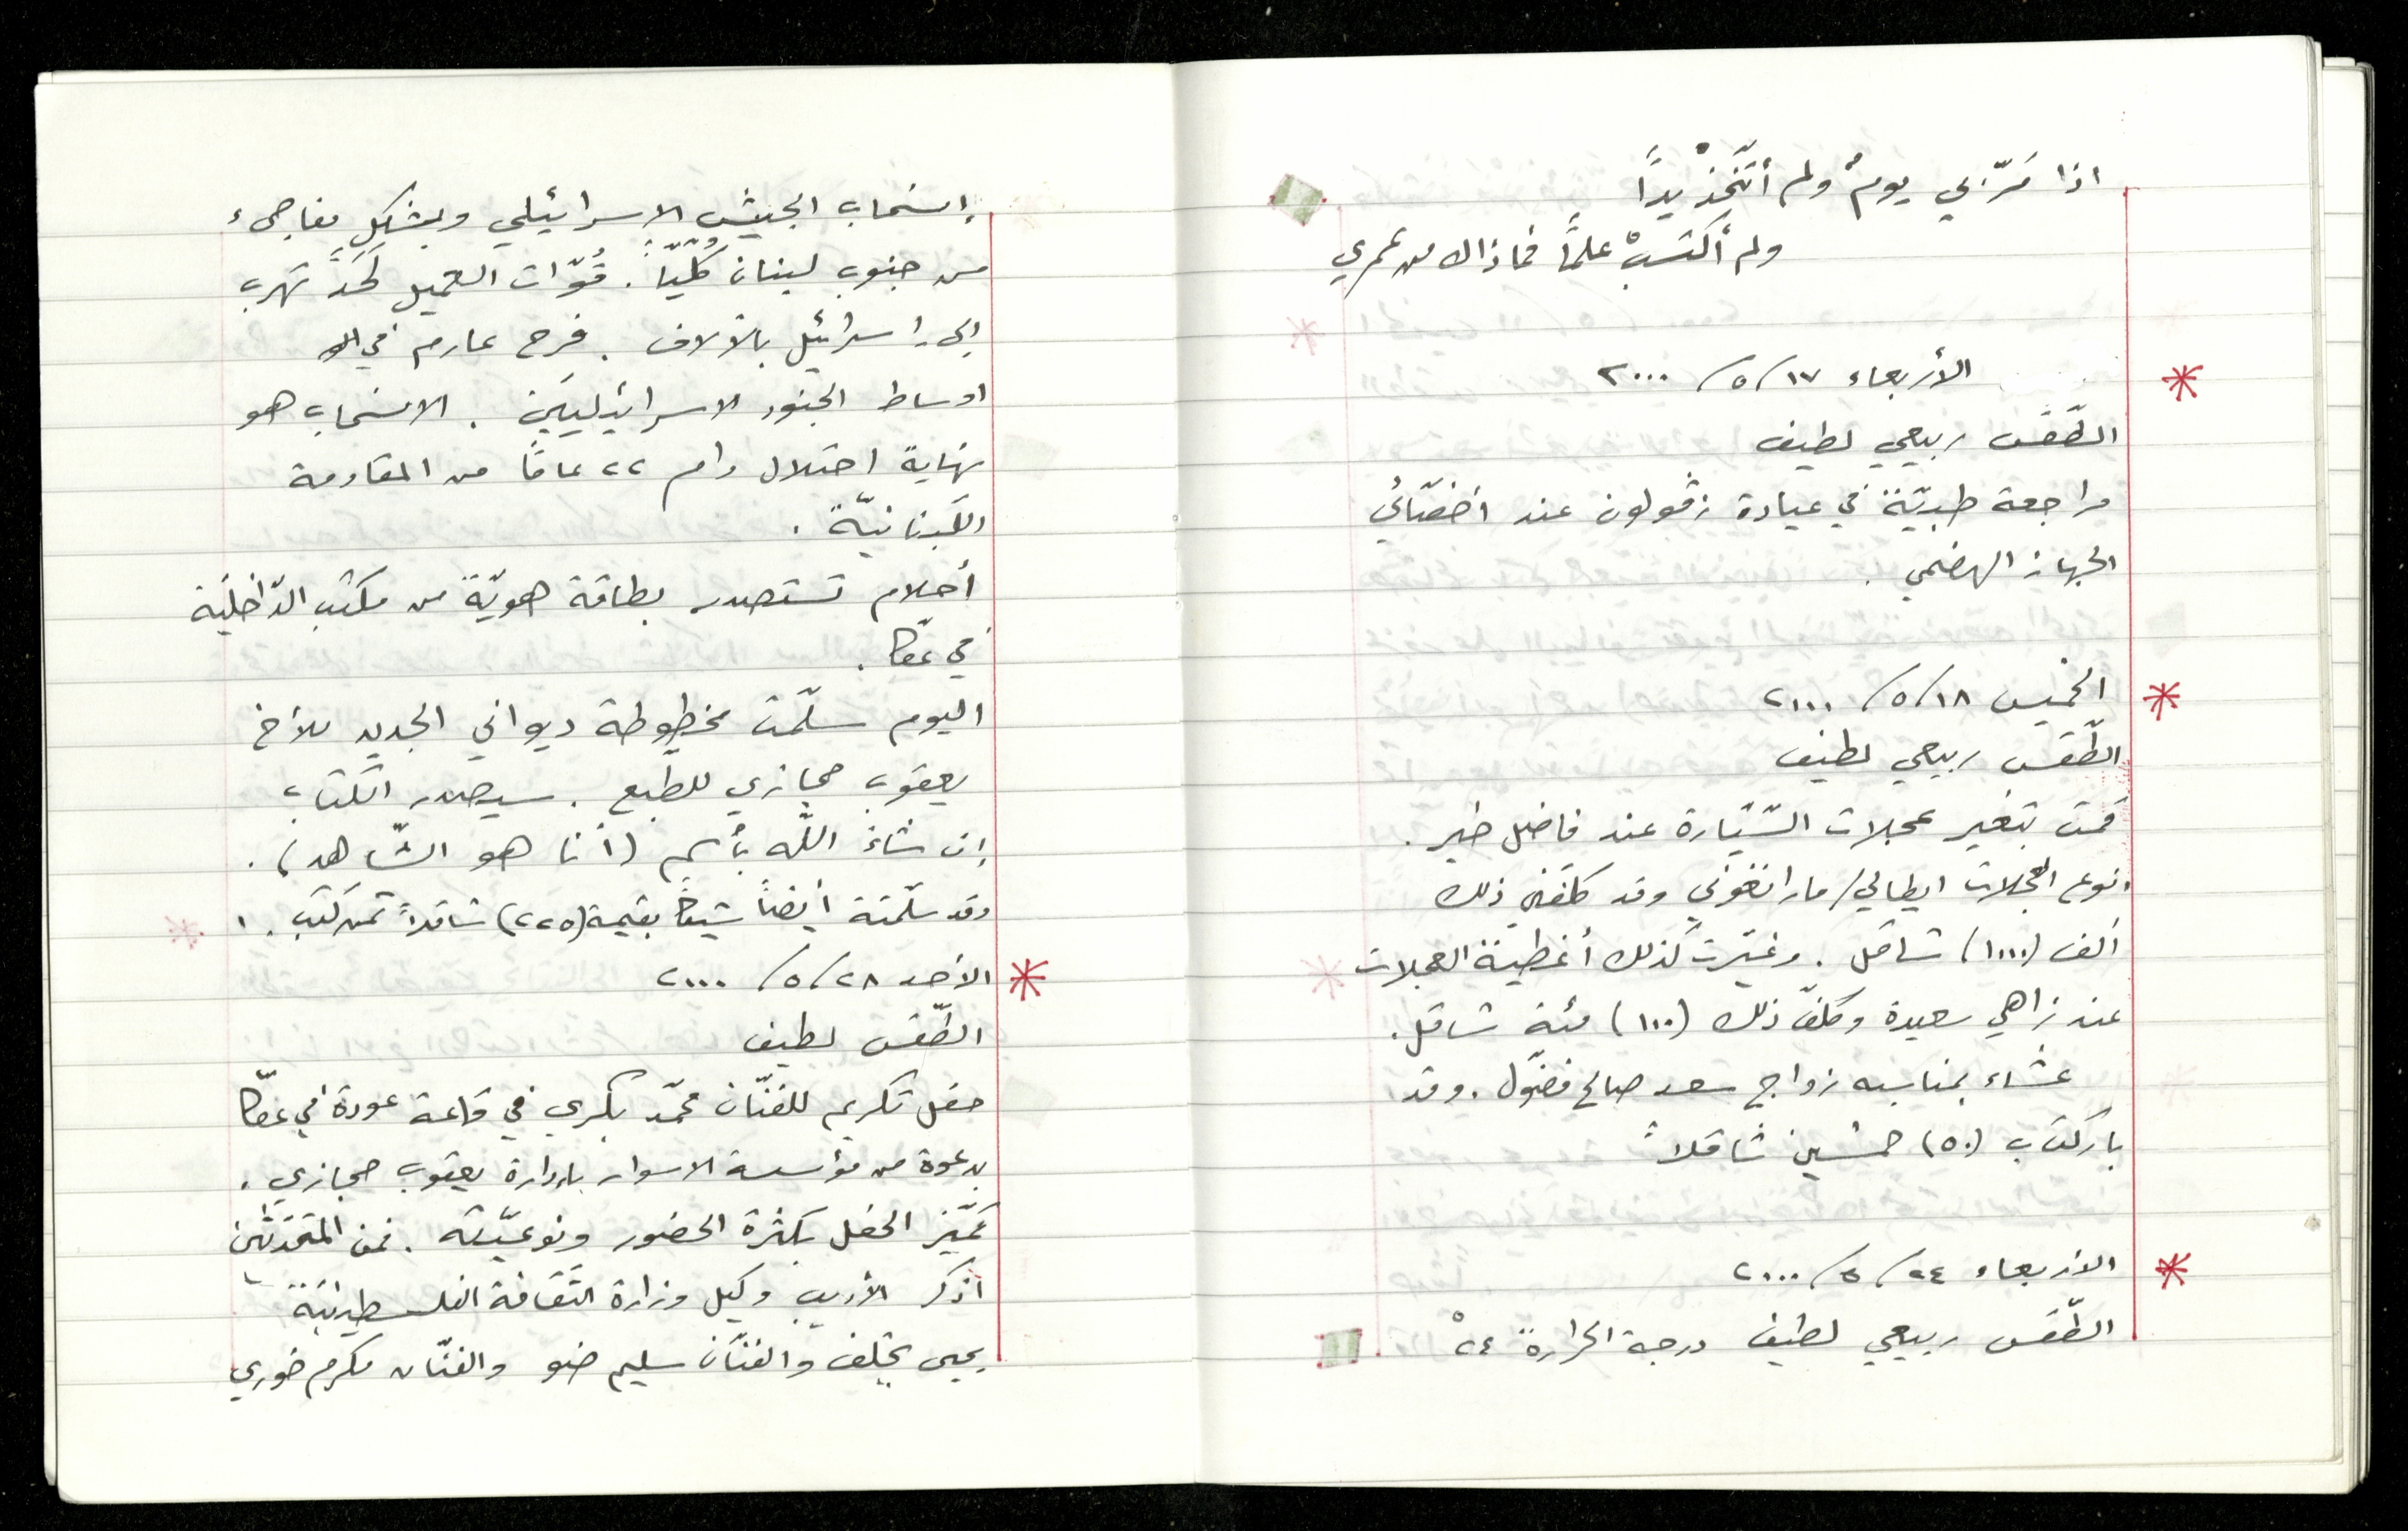 اذا مَرّ بي يومٌ ولم أتّخذْ يداً
ولم أكتسبْ علماً فما ذاك من عمري
الأربعاء ١٧/٥/٢٠٠٠
الطّقس ربيعي لطيف
مراجعة طبيّة في عيادة زڤولون عند أخصّائي
الجهاز الهضمي.
الخميس ١٨/٥/٢٠٠٠
الطّقس ربيعي لطيف
قمت بتغير عجلات السّيّارة عند فاضل خير.
نوع العجلات ايطالي/مارانغوني وقد كلّفني ذلك
ألف (١٠٠٠) شاقل. وغيّرت كذلك أغطية العجلات
عند زاهي سعيدة وكلّف ذلك (١٠٠) مئة شاقل.
عشاء بمناسبه زواج سعد صالح فضّول. وقد
باركت ب (٥٠) خمسين شاقلاً
الاربعاء ٢٤/٥/٢٠٠٠
الطّقس ربيعي لطيف درجة الحرارة ٢٤°
إنسحاب الجيش الاسرائيلي وبشكلٍ مفاجىء
من جنوب لبنان كليّاً. قُوّات العميل لحد تهرب
إلى إسرائيل بالآلاف. فرح عارم في
اوساط الجنود الاسرائيليين. الانسحاب هو
نهاية احتلال دام ٢٢ عاماً من المقاومة
اللّبنانيّة.
أحلام تستصدر بطاقة هويّة من مكتب الدّاخليّة
في عكّا.
اليوم سلّمت مخطوطة ديواني الجديد للأخ
يعقوب حجازي للطبع. سيصدر الكتاب
إن شاءَ اللّه بأسم (أنا هو الشّاهد).
وقد سلّمته أيضاً شيكاً بقيمة (٢٢٥) شاقلاً ثمن كتب.
الأحد ٢٨/٥/٢٠٠٠
الطّقس لطيف
حفل تكريم للفنّان محمّد بكري في قاعة عودة في عكّا
بدعوة من مؤسسة الاسوار بإدارة يعقوب حجازي.
تميّز الحفل بكثرة الحضور ونوعيّته. فمن المتحدّثين
أذكر الأديب وكيل وزارة الثّقافة الفلسطينيّة
يحيى يخلف والفنّان سليم ضو والفنّان مكرم خوري